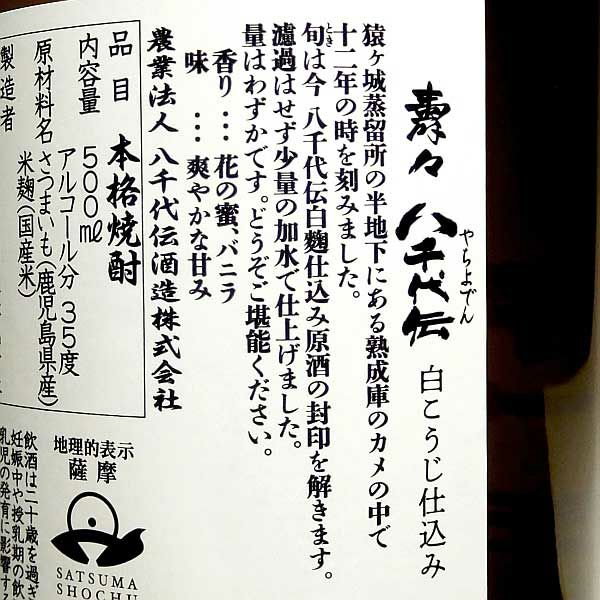 壽々 八千代伝 白こうじ仕込み
やちよでん
猿ヶ城蒸留所の半地下にある熟成庫のカメの中で
十二年の時を刻みました。
旬は今 八千代伝白麴仕込み原酒の封印を解きます。
とき
濾過はせず少量の加水で仕上げました。
量はわずかです。どうぞご堪能ください。
香り…花の蜜、バニラ
味…爽やかな甘み
農業法人 八千代伝酒造株式会社
品目 本格焼酎
内容量 500㎖
アルコール分 35度
原材料名 さつまいも(鹿児島県産)
米麹(国産米)
製造者
地理的表示
薩摩
SATSUMA
SHOCHU
飲酒は二十歳を過ぎ
妊娠中や授乳期の飲
乳児の発育に影響す